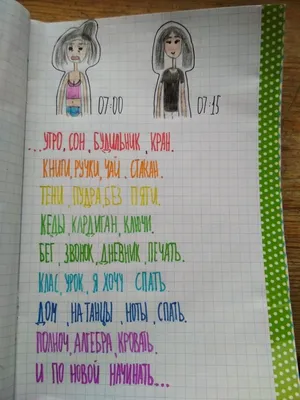 07:00
07:15
...УТРО, СОН, БУДИЛЬНИК, КРАН.
КНИГИ, РУЧКИ, ЧАЙ, СТАКАН.
ТЕНИ, ПУДРА, БЕЗ ПЯТИ.
КЕДЫ, КАРДИГАН, КЛЮЧИ.
БЕГ, ЗВОНОК, ДНЕВНИК, ПЕЧАТЬ.
КЛАС, УРОК, Я ХОЧУ СПАТЬ.
ДОМ, НА ТАНЦЫ, НОТЫ, СПАТЬ.
ПОЛНОЧ, АЛГЕБРА, КРОВАТЬ.
И ПО НОВОЙ НАЧИНАТЬ...